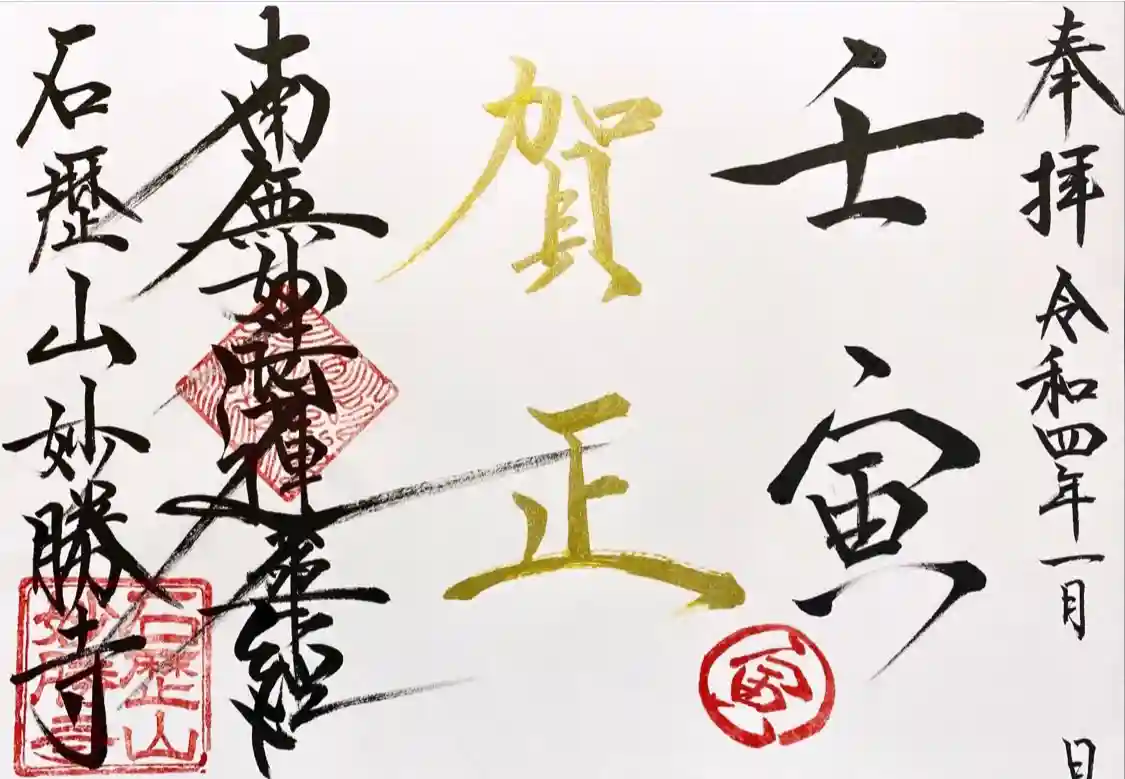 奉拝 令和四年一月 日
壬寅
賀正
南無妙法蓮華経
石歴山妙勝寺
寅
石歴山
妙勝寺